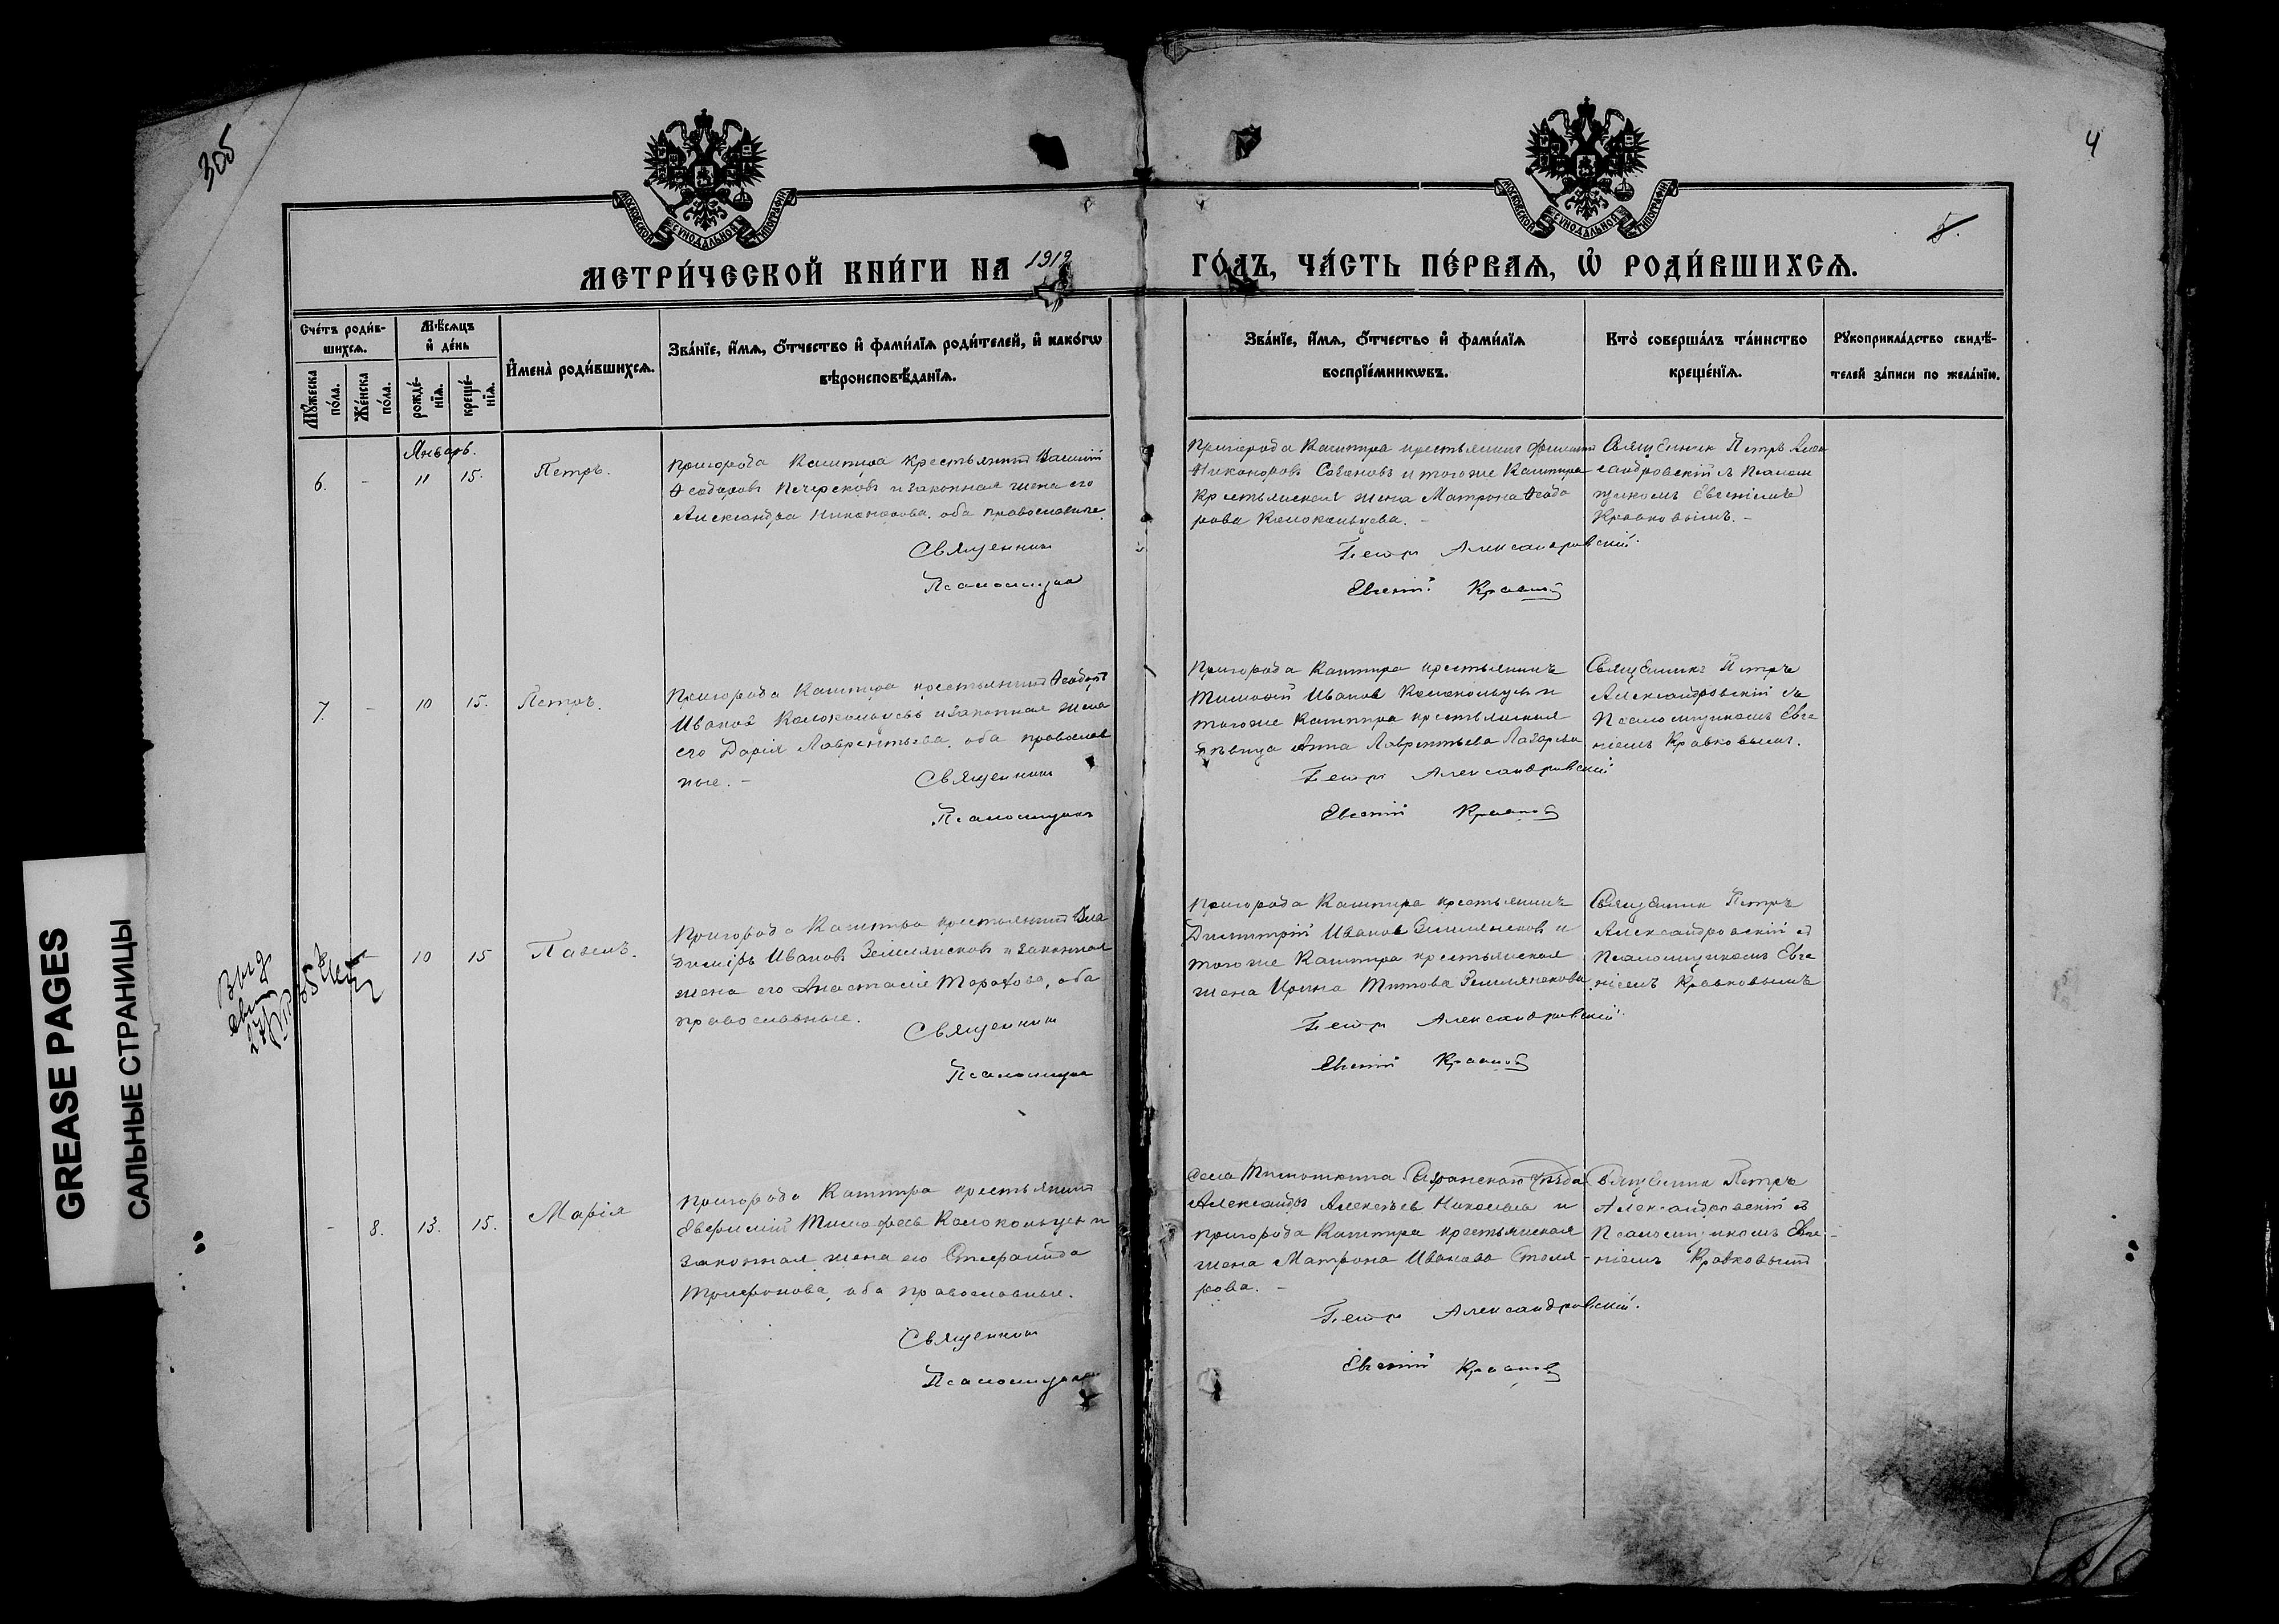 305
4
5.
МОСКОВСКОЙ СѴНОДАЛЬНОЙ ТИПОГРАФІИ
МОСКОВСКОЙ СѴНОДАЛЬНОЙ ТИПОГРАФІИ
МЕТРИ́ЧЕСКОЙ КНИ́ГИ НА 1912
ГО́ДЪ, ЧА́СТЬ ПЕ́РВАѦ, Ѡ҆ РОДИ́ВШИХСѦ.
Сче́тъ роди́в-
шихсѧ.
Мꙋ́жеска
по́ла.
Же́нска
по́ла.
Мѣ́сѧцъ
и҆ де́нь
рожде́-
нїѧ.
креще́-
нїѧ.
И҆мена̀ роди́вшихсѧ.
Зва́нїе, и҆́мѧ, ѻ҆́тчество и҆ фами́лїѧ роди́телей, и҆ како́гѡ
вѣроисповѣ́данїѧ.
Зва́нїе, и҆́мѧ, ѻ҆́тчество и҆ фами́лїѧ
воспрїе́мникѡвъ.
Кто̀ соверша́лъ та́инство
креще́нїѧ.
Рꙋкоприкла́дство свидѣ́-
телей за́писи по жела́нїю.
Январь.
6. - 11 15. Петръ.
Пригорода Кашпира крестьянинъ Василій
Ѳеодоровъ Печерсковъ и законная жена его
Александра Никонорова, оба православные.
Священникъ
Псаломщикъ
Пригорода Кашпира крестьянинъ
Никоноровъ и тогоже Кашпира
крестьянская жена Матрона Ѳеодо
рова Колокольцева. -
Петръ Александровскій.
Евгеній Кравковъ
Священникъ Петръ Алек
сандровскій съ Псалом
щикомъ Евгеніемъ
Кравковымъ. -
7. - 10 15. Петръ.
Пригорода Кашпира крестьянинъ Ѳеодоръ
Ивановъ Колокольцевъ и законная жена
его Дарія Лаврентьева, оба православ
ные. -
Священникъ
Псаломщикъ
Пригорода Кашпира крестьянинъ
Тимофей Ивановъ Колокольцевъ и
тогоже Кашпира крестьянская
дѣвица Анна Лаврентьева Лазарева
Петръ Александровскій
Евгеній Кравковъ
Священникъ Петръ
Александровскій съ
Псаломщикомъ Евге
ніемъ Кравковымъ.
10 15 Павелъ.
Пригорода Кашпира крестьянинъ Вла
диміръ Ивановъ Землянсковъ и законная
жена его Анастасія Терохова, оба
православные.
Священникъ
Псаломщикъ
Пригорода Кашпира крестьянинъ
Димитрій Ивановъ Землянсковъ и
тогоже Кашпира крестьянская
жена Ирина Титова Землянскова
Петръ Александровскій.
Евгеній Кравковъ
Священникъ Петръ
Александровскій съ
Псаломщикомъ Евге
ніемъ Кравковымъ
- 8. 13. 15. Марія
Пригорода Кашпира крестьянинъ
Евфимій Тимофеевъ Колокольцевъ и
законная жена его Степанида
Трифонова, оба православные.
Священникъ
Псаломщикъ
Села Тимошкина Сызранскаго уѣзда
Александръ Алексѣевъ Николаевъ и
пригорода Кашпира крестьянская
жена Матрона Иванова Столя
рова. -
Петръ Александровскій.
Евгеній Кравковъ
Священникъ Петръ
Александровскій съ
Псаломщикомъ Евге-
ніемъ Кравковымъ
GREASE PAGES
САЛЬНЫЕ СТРАНИЦЫ